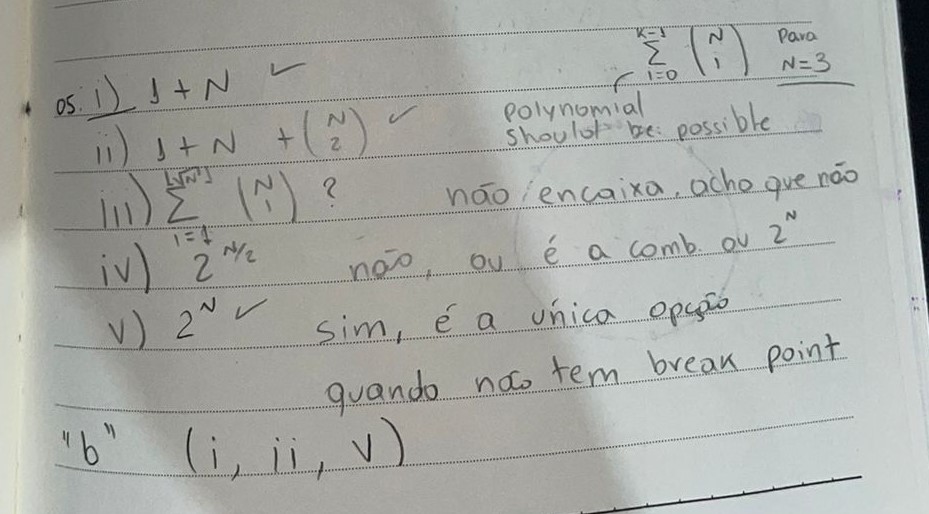 05. i) 1 + N ✓
∑ i=0 K-1 (N i) Para N=3
ii) 1 + N + (N 2) ✓ polynomial should be possible
iii) ∑ i=1 ⌊√N⌋ (N i) ? não encaixa, acho que não
iv) 2^N/2 não, ou é a comb. ou 2^N
v) 2^N ✓ sim, é a única opção
quando não tem break point
"b" (i, ii, v)